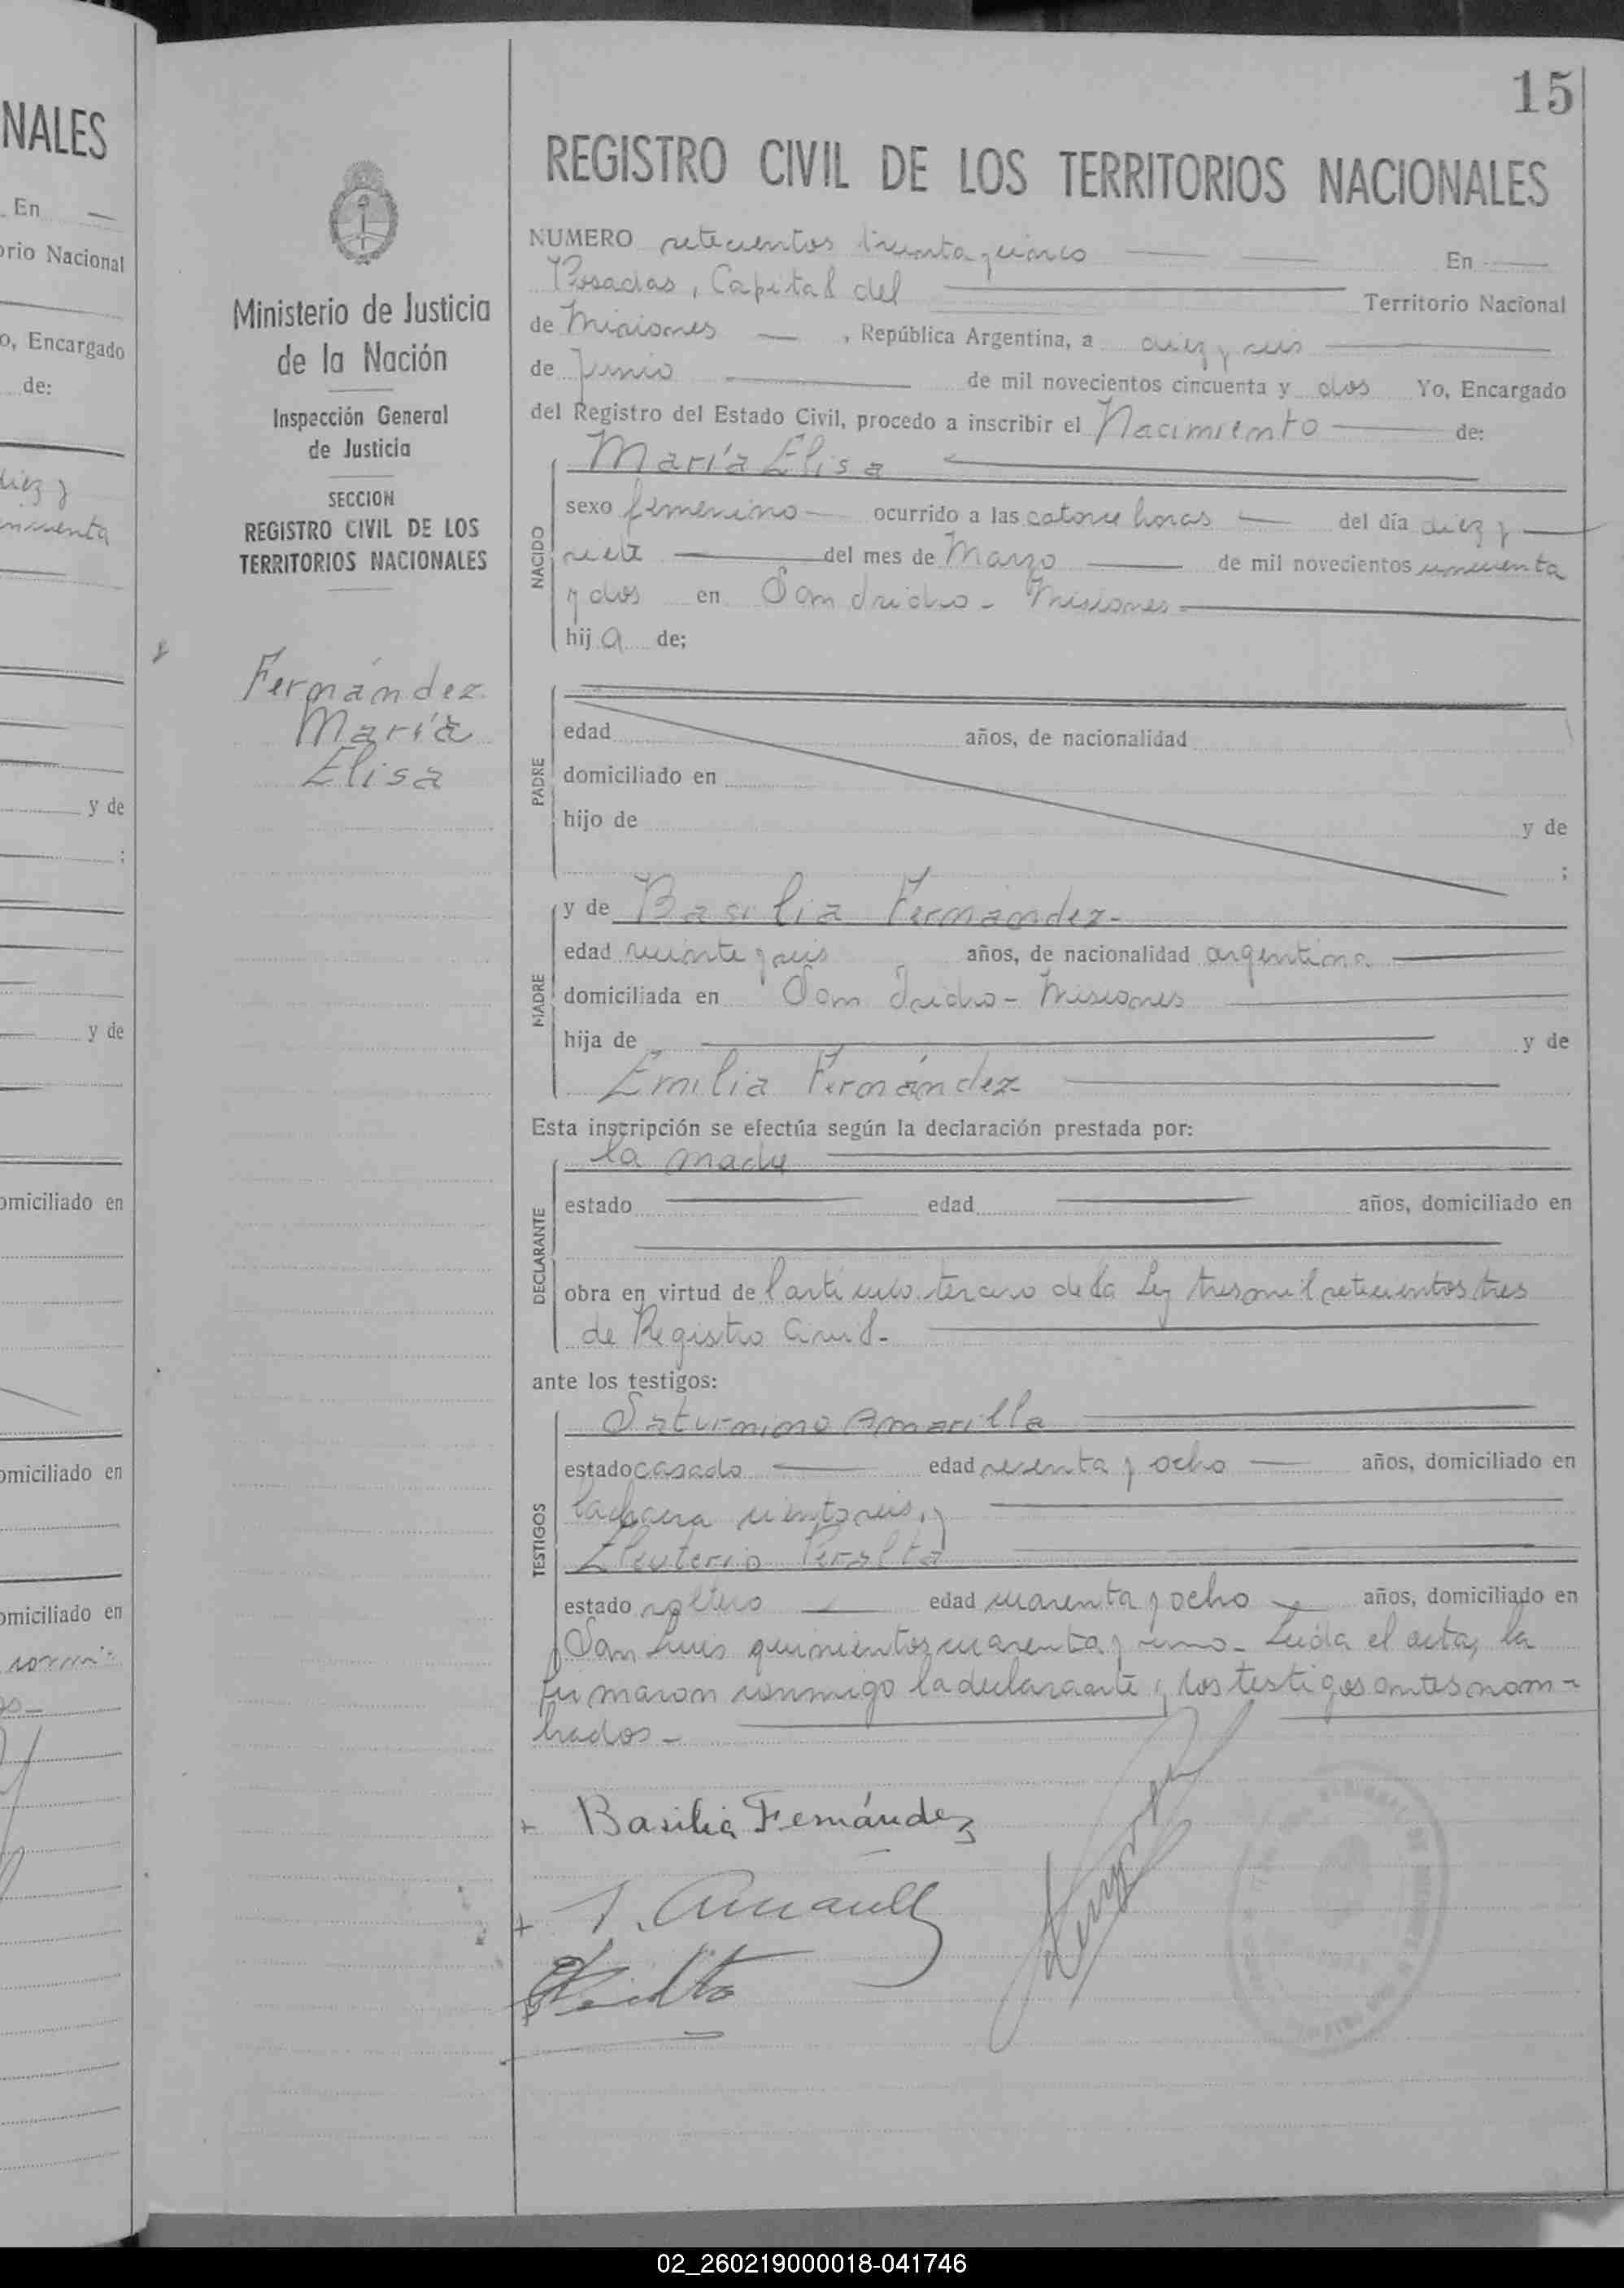 NALES
En
orio Nacional
o, Encargado
de:
diez y
cincuenta
y de
;
y de
omiciliado en
omiciliado en
omiciliado en
15
Ministerio de Justicia
de la Nación
Inspección General
de Justicia
SECCION
REGISTRO CIVIL DE LOS
TERRITORIOS NACIONALES
Fernández
María
Elisa
REGISTRO CIVIL DE LOS TERRITORIOS NACIONALES
NUMERO setecientos treinta y cinco En
Posadas, Capital del Territorio Nacional
de Misiones, República Argentina, a diez y seis
de Junio de mil novecientos cincuenta y dos Yo, Encargado
del Registro del Estado Civil, procedo a inscribir el Nacimiento de:
María Elisa
NACIDO
sexo femenino ocurrido a las catorce horas del día diez y
siete del mes de Marzo de mil novecientos cincuenta
y dos en San Isidro - Misiones
hija de;
PADRE
edad años, de nacionalidad
domiciliado en
hijo de y de
;
MADRE
y de Basilia Fernández-
edad veinte y seis años, de nacionalidad argentina
domiciliada en San Isidro - Misiones
hija de y de
Emilia Fernández
Esta inscripción se efectúa según la declaración prestada por:
DECLARANTE
la madre
estado edad años, domiciliado en
obra en virtud del artículo tercero de la Ley tres mil setecientos tres
de Registro Civil.-
ante los testigos:
TESTIGOS
Saturnino Amarilla
estado casado edad sesenta y ocho años, domiciliado en
la chacra ciento seis, y
Eleuterio Peralta
estado soltero edad cuarenta y ocho años, domiciliado en
San Luis quinientos cuarenta y uno - Leida el acta, la
firmaron conmigo la declarante y los testigos antes nom-
brados -
+ Basilia Fernández
+ S. Amarilla
+ E Peralta
02_260219000018-041746